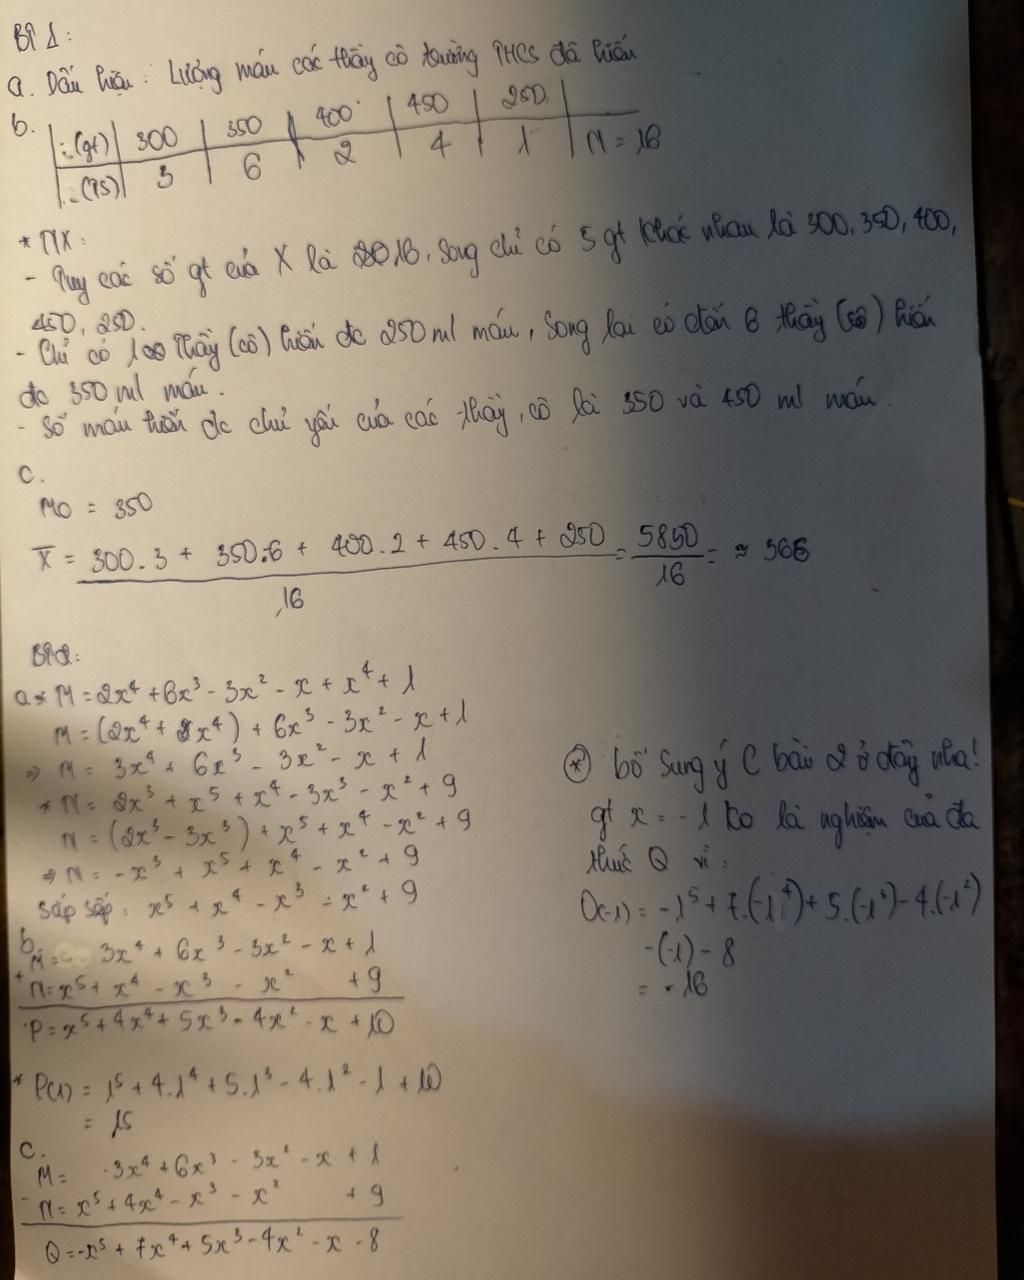 Bài 1:
a. Dấu hiệu: Lượng máu các thầy cô trường THCS đã hiến
b. (gt) 300 350 400 450 250
(TS) 3 6 2 4 1 N = 16
* NX:
- Tuy các số gt của X là 16, song chỉ có 5 gt khác nhau là 300, 350, 400,
450, 250.
- Chỉ có 1 thầy (cô) hiến đc 250 ml máu, song lại có đến 6 thầy (cô) hiến
đc 350 ml máu.
- Số máu hiến đc chủ yếu của các thầy, cô là 350 và 450 ml máu.
c.
M0 = 350
X̄ = (300.3 + 350.6 + 400.2 + 450.4 + 250)/16 = 5850/16 = ≈ 366
Bài 2:
a * M = 2x⁴ + 6x³ - 3x² - x + x⁴ + 1
M = (2x⁴ + x⁴) + 6x³ - 3x² - x + 1
⇒ M = 3x⁴ + 6x³ - 3x² - x + 1
* N = 2x³ + x⁵ + x⁴ - 3x³ - x² + 9
N = (2x³ - 3x³) + x⁵ + x⁴ - x² + 9
⇒ N = -x³ + x⁵ + x⁴ - x² + 9
Sắp sếp: x⁵ + x⁴ - x³ - x² + 9
b. M = 3x⁴ + 6x³ - 3x² - x + 1
+ N = x⁵ + x⁴ - x³ - x² + 9
P = x⁵ + 4x⁴ + 5x³ - 4x² - x + 10
* P(1) = 1⁵ + 4.1⁴ + 5.1³ - 4.1² - 1 + 10
= 15
c.
M = 3x⁴ + 6x³ - 3x² - x + 1
- N = x⁵ + 4x⁴ - x³ - x² + 9
Q = -x⁵ + 7x⁴ + 5x³ - 4x² - x - 8
* bổ sung ý C bài 2 ở đây nha!
gt x = -1 ko là nghiệm của đa
thức Q vì:
Q(-1) = -1⁵ + 7.(-1⁴) + 5.(-1³) - 4.(-1²)
-(-1) - 8
= -16